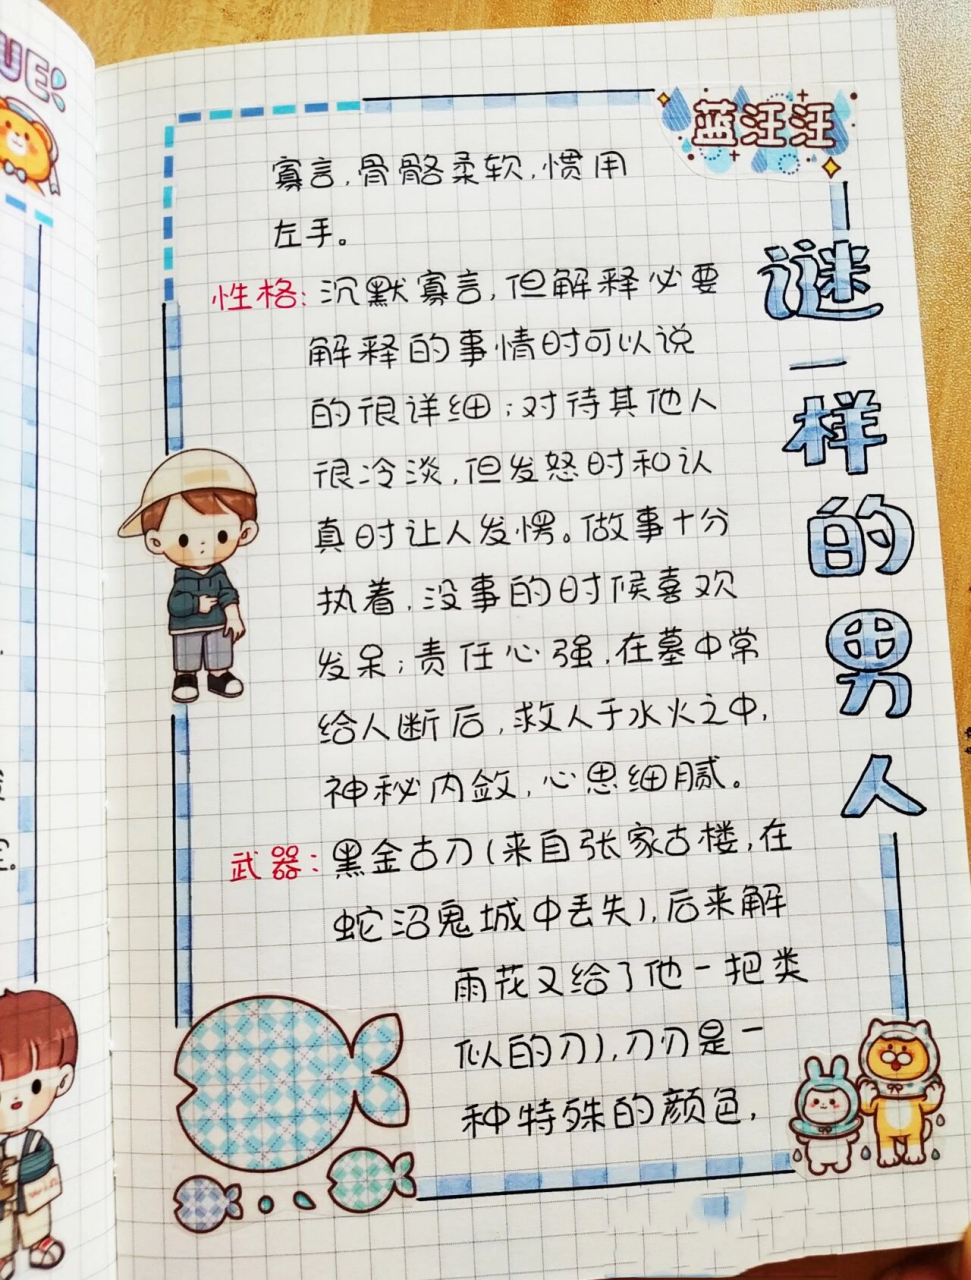 UE
蓝汪汪
谜一样的男人
寡言,骨骼柔软,惯用
左手。
性格:沉默寡言,但解释必要
解释的事情时可以说
的很详细;对待其他人
很冷淡,但发怒时和认
真时让人发愣。做事十分
执着,没事的时候喜欢
发呆;责任心强,在墓中常
给人断后,救人于水火之中,
神秘内敛,心思细腻。
武器:黑金古刀(来自张家古楼,在
蛇沼鬼城中丢失),后来解
雨花又给了他一把类
似的刀),刀刃是一
种特殊的颜色,